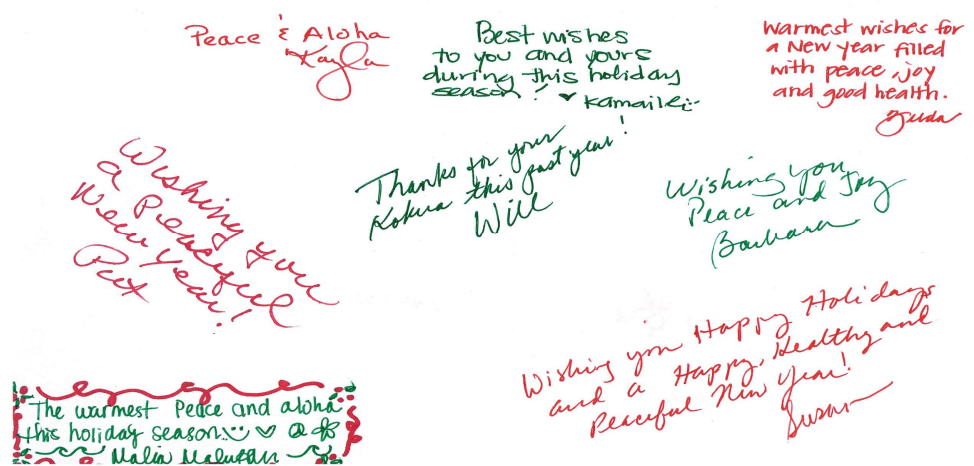 Peace & Aloha
Kayla
Best wishes
to you and yours
during this holiday
season! ♥ Kamaile
Warmest wishes for
a New year filled
with peace, joy
and good health.
Wishing you
a Peaceful
New Year!
Pat
Thanks for your
Kokua this past year!
Will
Wishing you
Peace and Joy
Barbara
Wishing you Happy Holidays
and a Happy, Healthy and
Peaceful New Year!
Susan
The warmest Peace and aloha
this holiday season. ♡
Malia